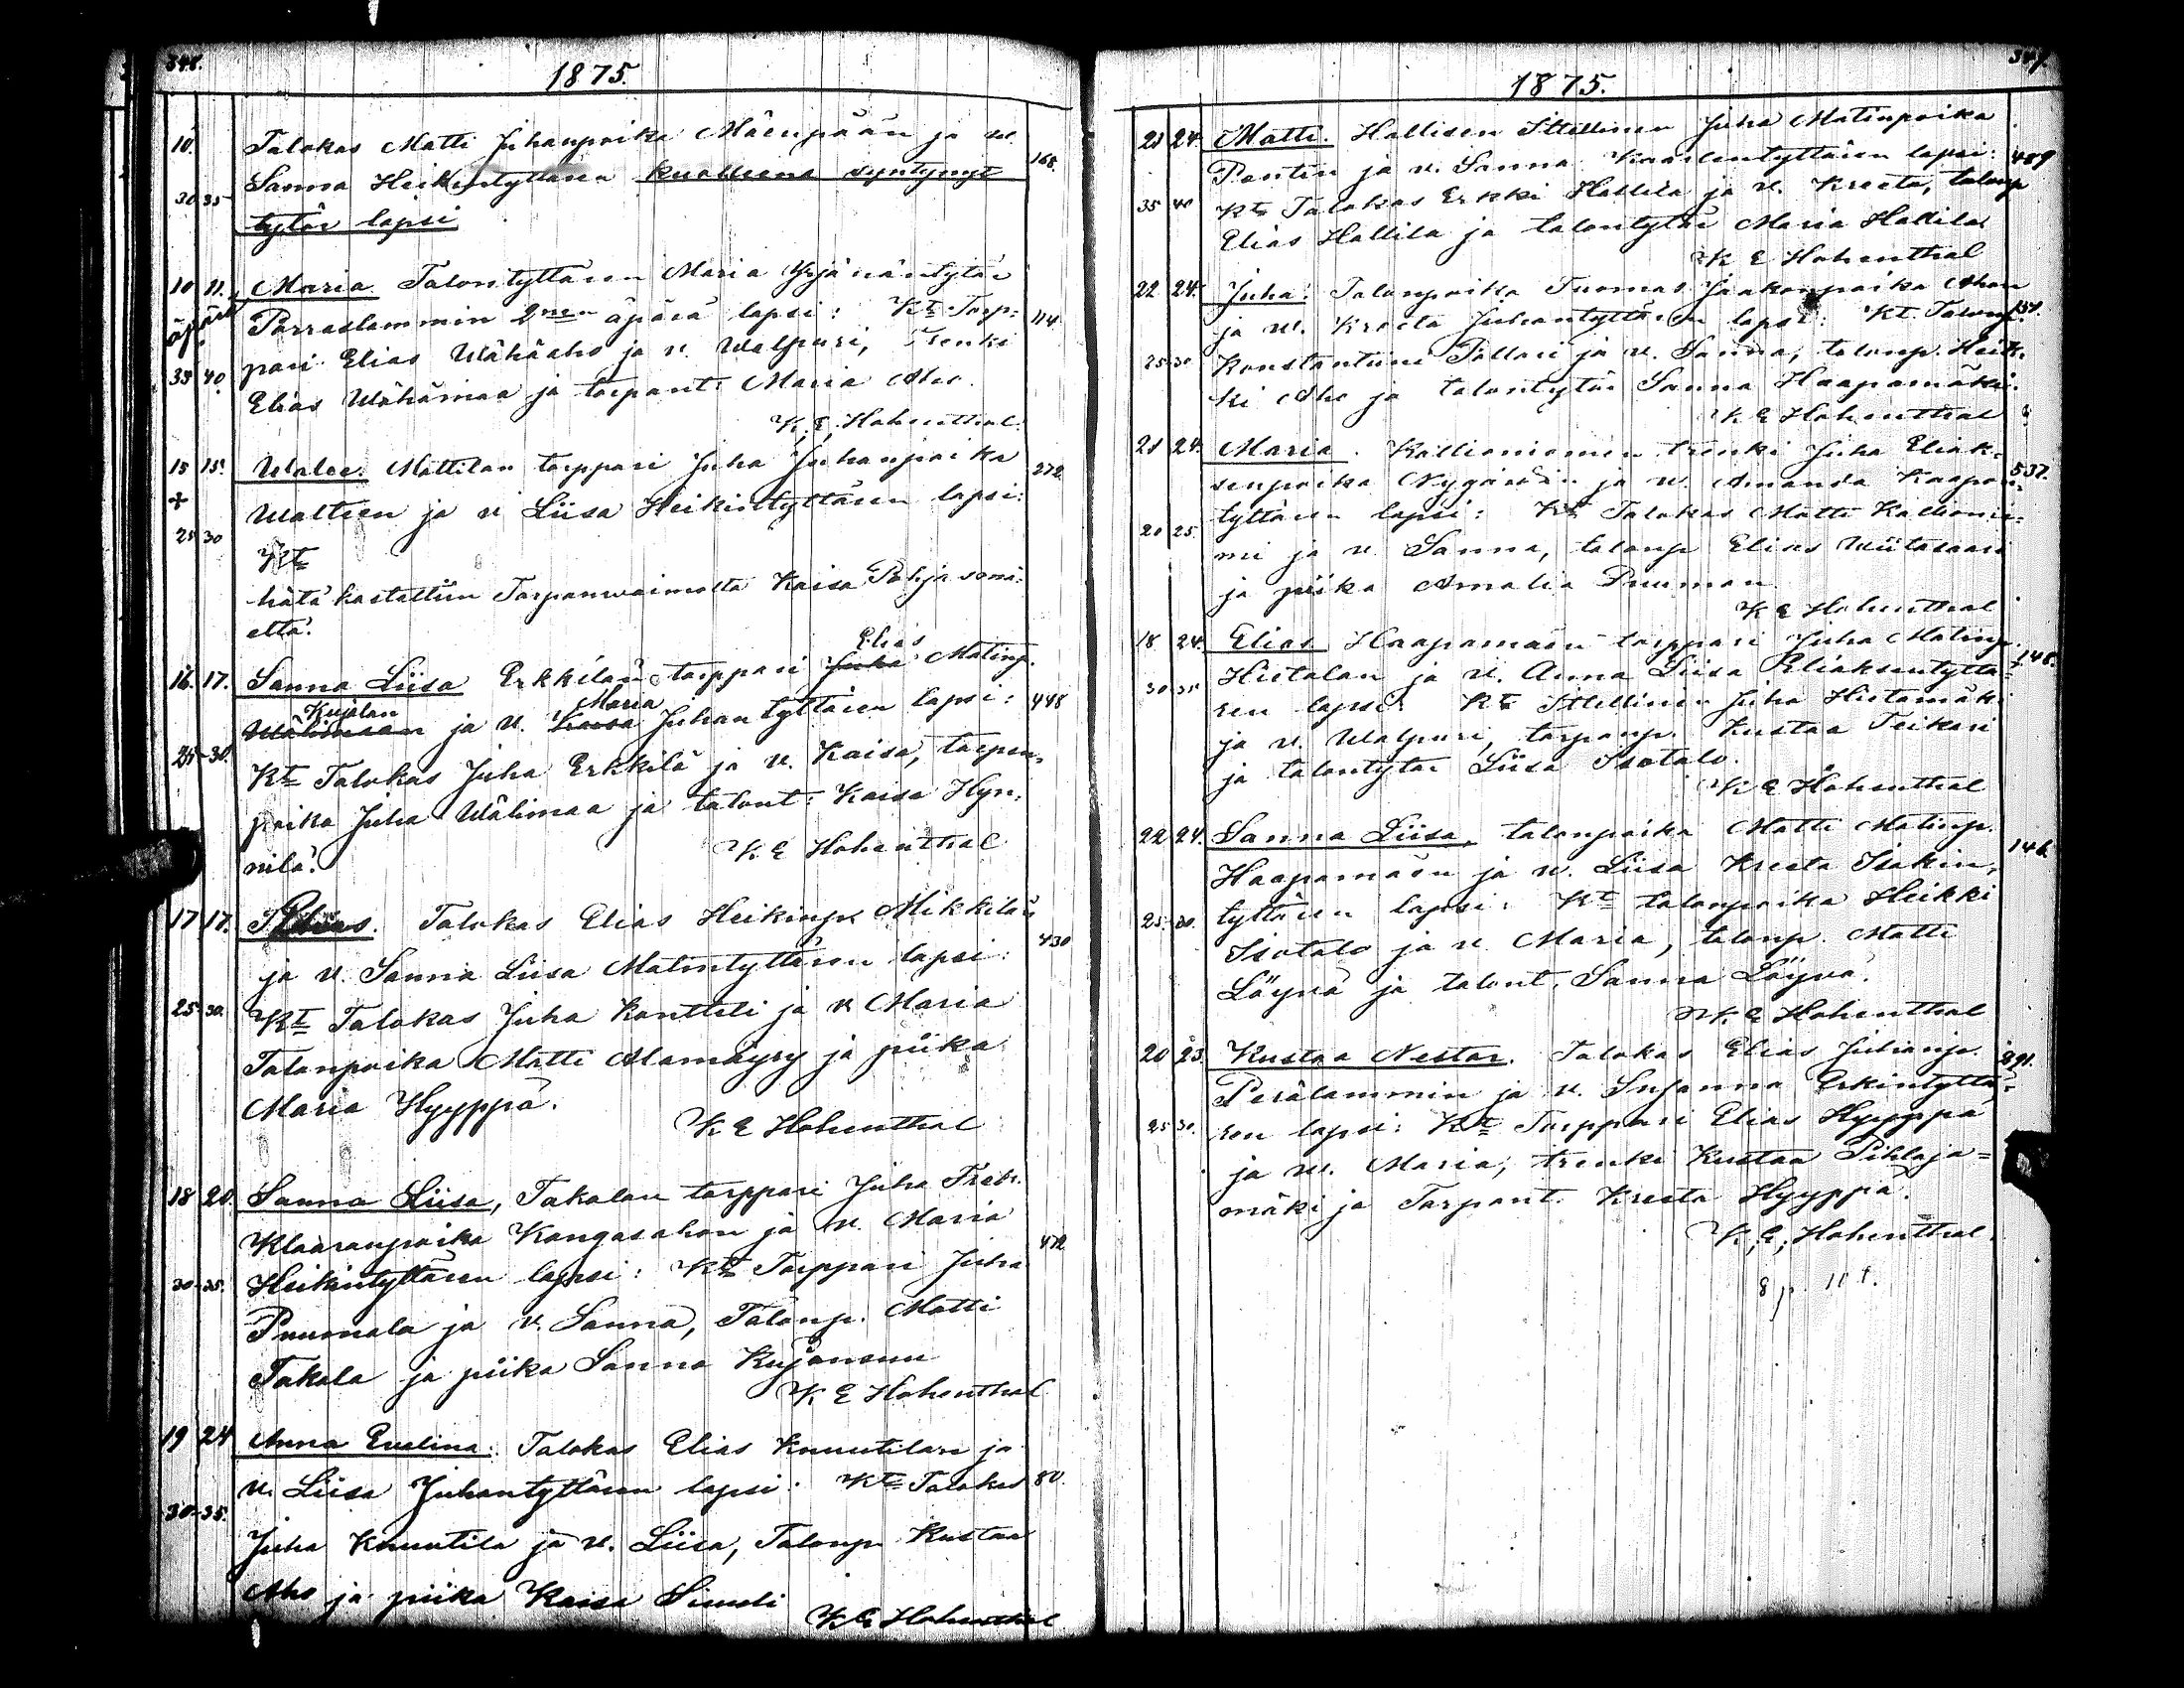 348.
1875.
10. Talokas Matti Juhanpoika Mäenpään ja w.
Sanna Heikintyttären kuolleena syntynyt 168.
30 35 tytär lapsi
10 11. Maria Talontyttären Maria Yrjänäntytär
äpärä Porraslammin 2nen äpärä lapsi: Kt Torp- 114
pari Elias Wähäaho ja v. Walpuri, Trenki
35 40. Elias Wähämaa ja torpant. Maria Aho.
K. E. Hohenthal.
15 15. Mattilan torppari Juha Juhanpoika 272
+ Walteen ja v. Liisa Heikintyttären lapsi:
25 30 Kt
hätä kastettiin Torpanwaimolta Kaisa
eltä.
Elias
16. 17. Sanna Liisa Erkkilän torppari Juha Matinp.
Kujalan Maria
Wälimaan ja v. Kaisa Juhantyttären lapsi: 448
25-30. Kt Talokas Juha Erkkilä ja v. Kaisa, torpan-
poika Juha Wälimaa ja talont: Kaisa Hyn-
nilä.
K. E Hohenthal
17 17. Elias. Talokas Elias Heikinp. Mikkilän
ja v. Sanna Liisa Matintyttären lapsi: 430
25-30. Kt Talokas Juha Kontteli ja v Maria
Talonpoika Matti Alamäyry ja piika
Maria Hyyppä.
K E Hohenthal
18 20. Sanna Liisa, Takalan torppari Juha Fredr.
Klaaranpoika Kangasahon ja v. Maria 472
30-35. Heikintyttären lapsi: Kt Torppari Juha
Puumala ja v. Sanna, Talonp. Matti
Takala ja piika Sanna Kujansuu
K E Hohenthal
19 24 Anna Evelina: Talokas Elias Knuutilan ja
v. Liisa Juhantyttären lapsi: Kt Talokas 80.
30-35. Juha Knuutila ja v. Liisa, Talonp Kustaa
Aho ja piika Kaisa Simuli
K E Hohenthal
1875.
21 24. Matti. Hallisen Itellinen Juha Matinpoika
Pentin ja v. Sanna Kaalentyttären lapsi: 489
35 40 Kt Talokas Erkki Hallila ja v. Kreeta, talonp
Elias Hallila ja talontytär Maria Hallila
K E Hohenthal
22 24. Juha. Talonpoika Tuomas Jaakonpoika Ahon
ja w. Kreeta Juhantyttären lapsi: Kt. Talonp. 151.
25 30 Konstantiini Pollari ja v. Sanna, talonp. Heik-
ki Aho ja talontytär Sanna Haapamäki.
K E Hohenthal
21 24. Maria. Kallioniemen trenki Juha Eliak-
senpoika ja w. Amanda Kaapon- 537.
20 25. tyttären lapsi: Kt Talokas Matti Kallionie-
mi ja v. Sanna, talonp Elias Wiitasaari
ja piika Amalia Puuman
K E Hohenthal
18 24. Elias Haapamäen torppari Juha Matinp. 148.
Hietalan ja v. Anna Liisa Eliaksentyttä-
30-35 ren lapsi. Kt Itellinen Juha Hietamäki
ja v. Walpuri, torpanp. Kustaa Teikari
ja talontytär Liisa Isotalo.
K E Hohenthal
22 24. Sanna Liisa, talonpoika Matti Matinp.
Haapamäen ja v. Liisa Kreeta Isakin- 146
25-30. tyttären lapsi: Kt talonpoika Heikki
Isotalo ja v. Maria, talonp. Matti
Löyvä ja talont. Sanna Löyvä.
K. E Hohenthal
20 25. Kustaa Nestor. Talokas Elias Juhanp. 291.
Perälammin ja v. Susanna Erkintyttä-
25 30. ren lapsi: Kt Torppari Elias Hyyppä
ja w. Maria, trenki Kustaa Pihlaja=
mäki ja Torpant. Kreeta Hyyppä.
K, E, Hohenthal.
8 p. 11 t.